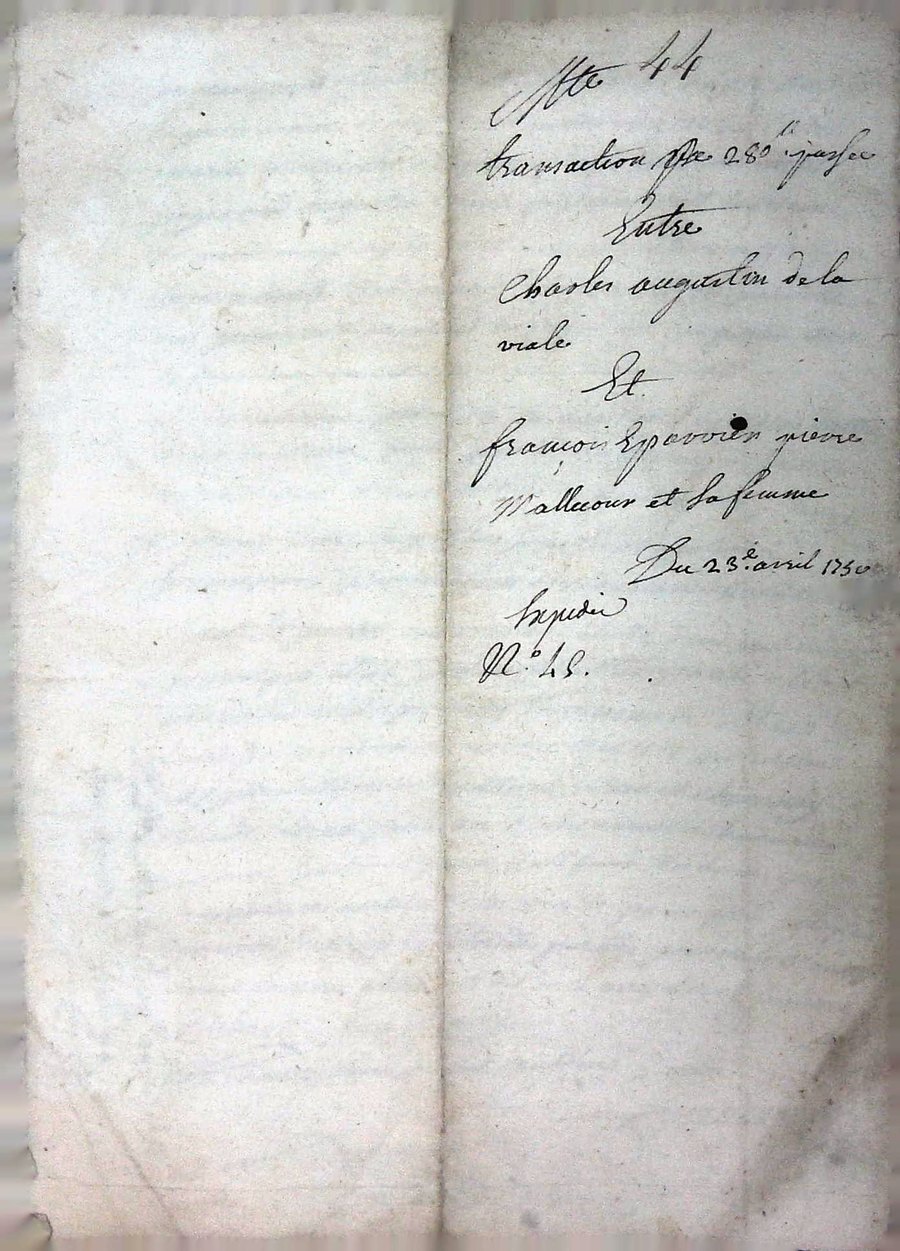 Mte 44
transaction Pre 280ll passée
Entre
Charles augustin de la
viale
Et
françois Eparvier pierre
Mallecour et sa femme
Du 23.e avril 1750
Expedié
N.o 48.